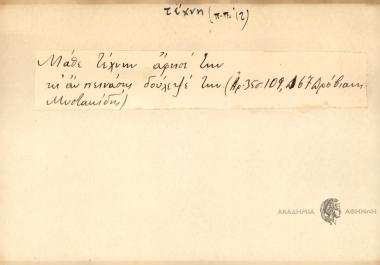 τέχνη (π.π. 12)
Μάθε τέχνην ἄφησέ την
κι ἂν πεινάσῃς δούλεψέ την (Ἀρ. 355. 109, 167 Δρόβιανη
Μυστακίδης)
ΑΚΑΔΗΜΙΑ ΑΘΗΝΩΝ